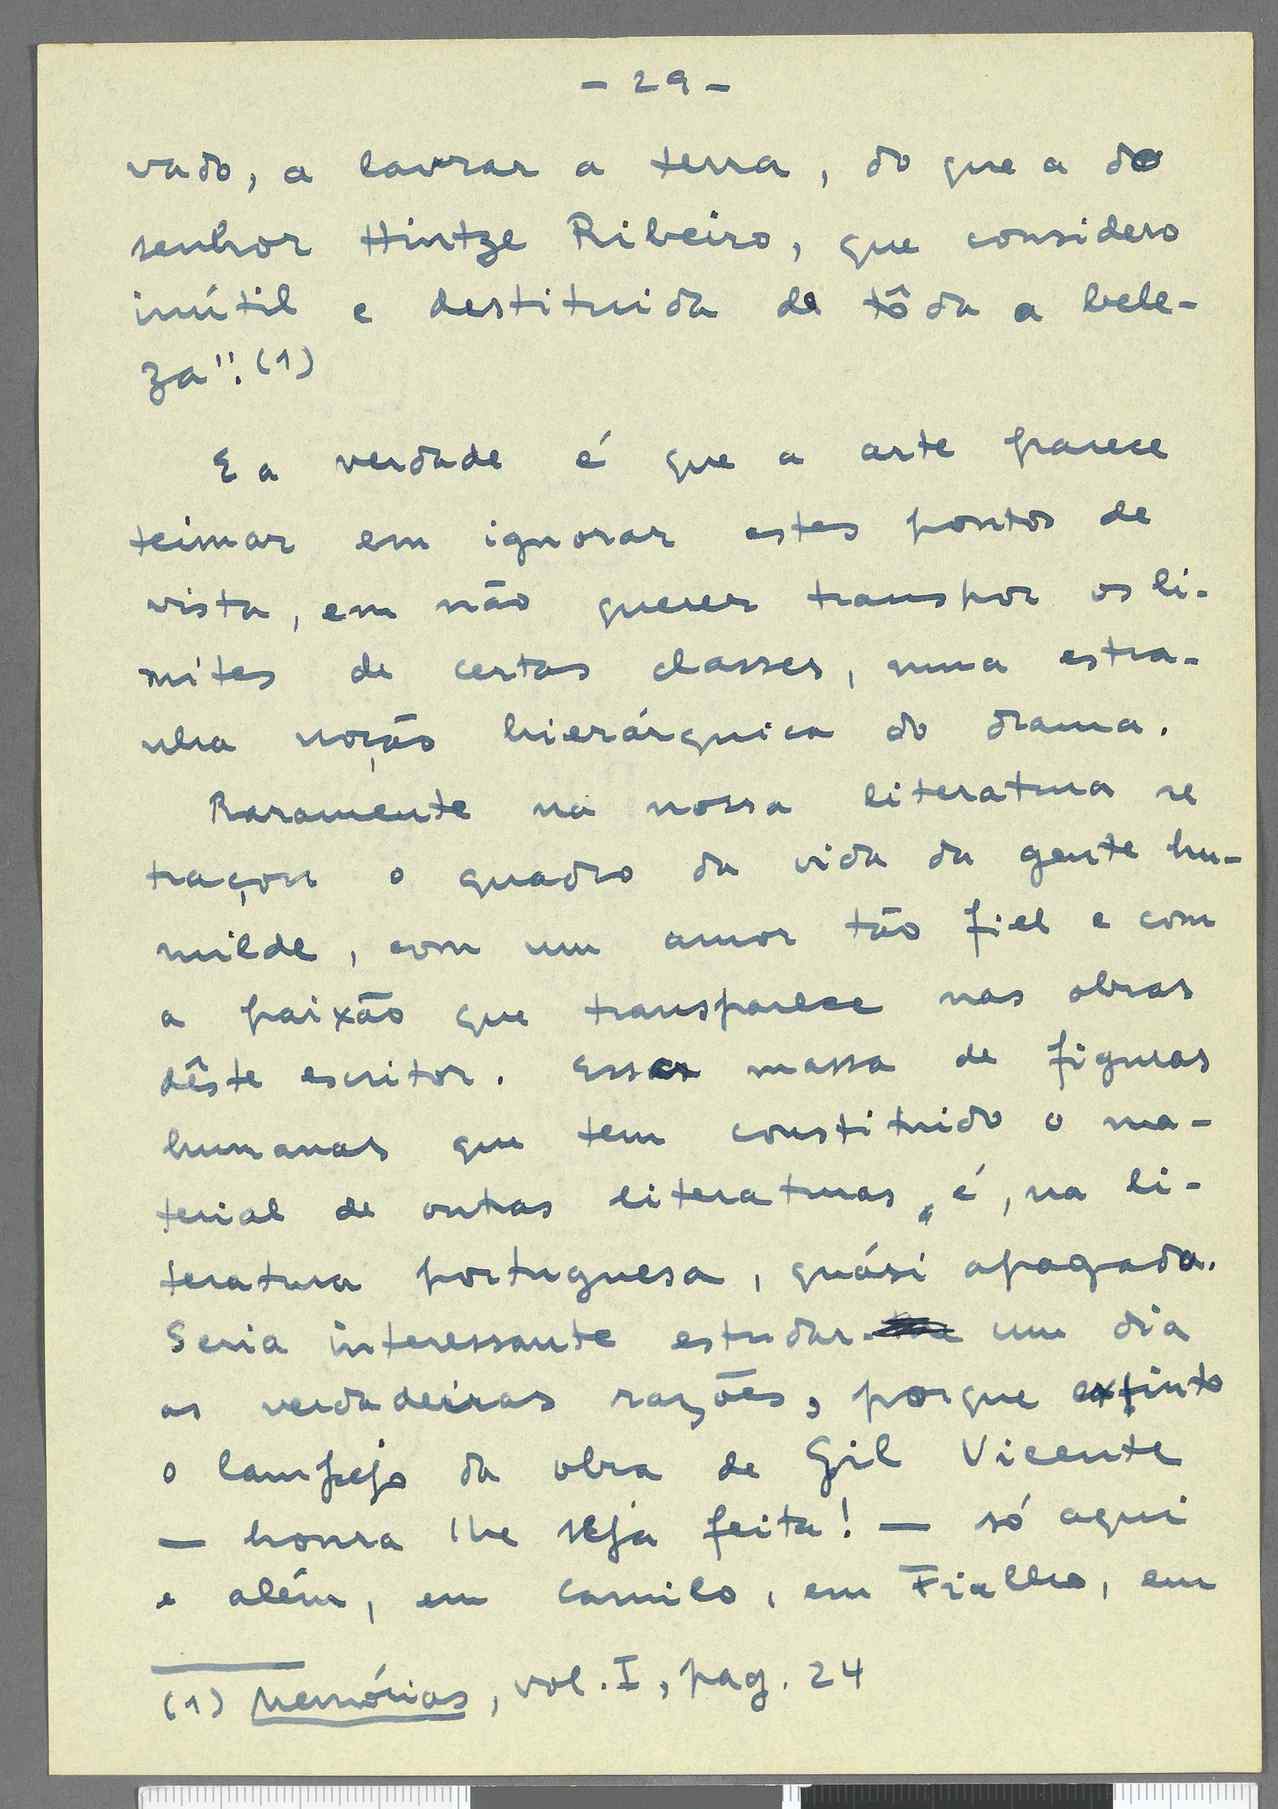 - 29 -
vado, a lavrar a terra, do que a do
senhor Hintze Ribeiro, que considero
inútil e destituida de tôda a bele-
za". (1)
E a verdade é que a arte parece
teimar em ignorar estes pontos de
vista, em não querer transpor os li-
mites de certas classes, numa estra-
nha noção hierárquica do drama.
Raramente na nossa literatura se
traçou o quadro da vida da gente hu-
milde, com um amor tão fiel e com
a paixão que transparece nas obras
dêste escritor. Essa massa de figuras
humanas que tem constituido o ma-
terial de outras literaturas, é, na li-
teratura portuguesa, quási apagada.
Seria interessante estudar um dia
as verdadeiras razões, porque extinto
o lampejo da obra de Gil Vicente
— honra lhe seja feita! — só aqui
e além, em Camilo, em Fialho, em
(1) Memórias, vol. I, pag. 24